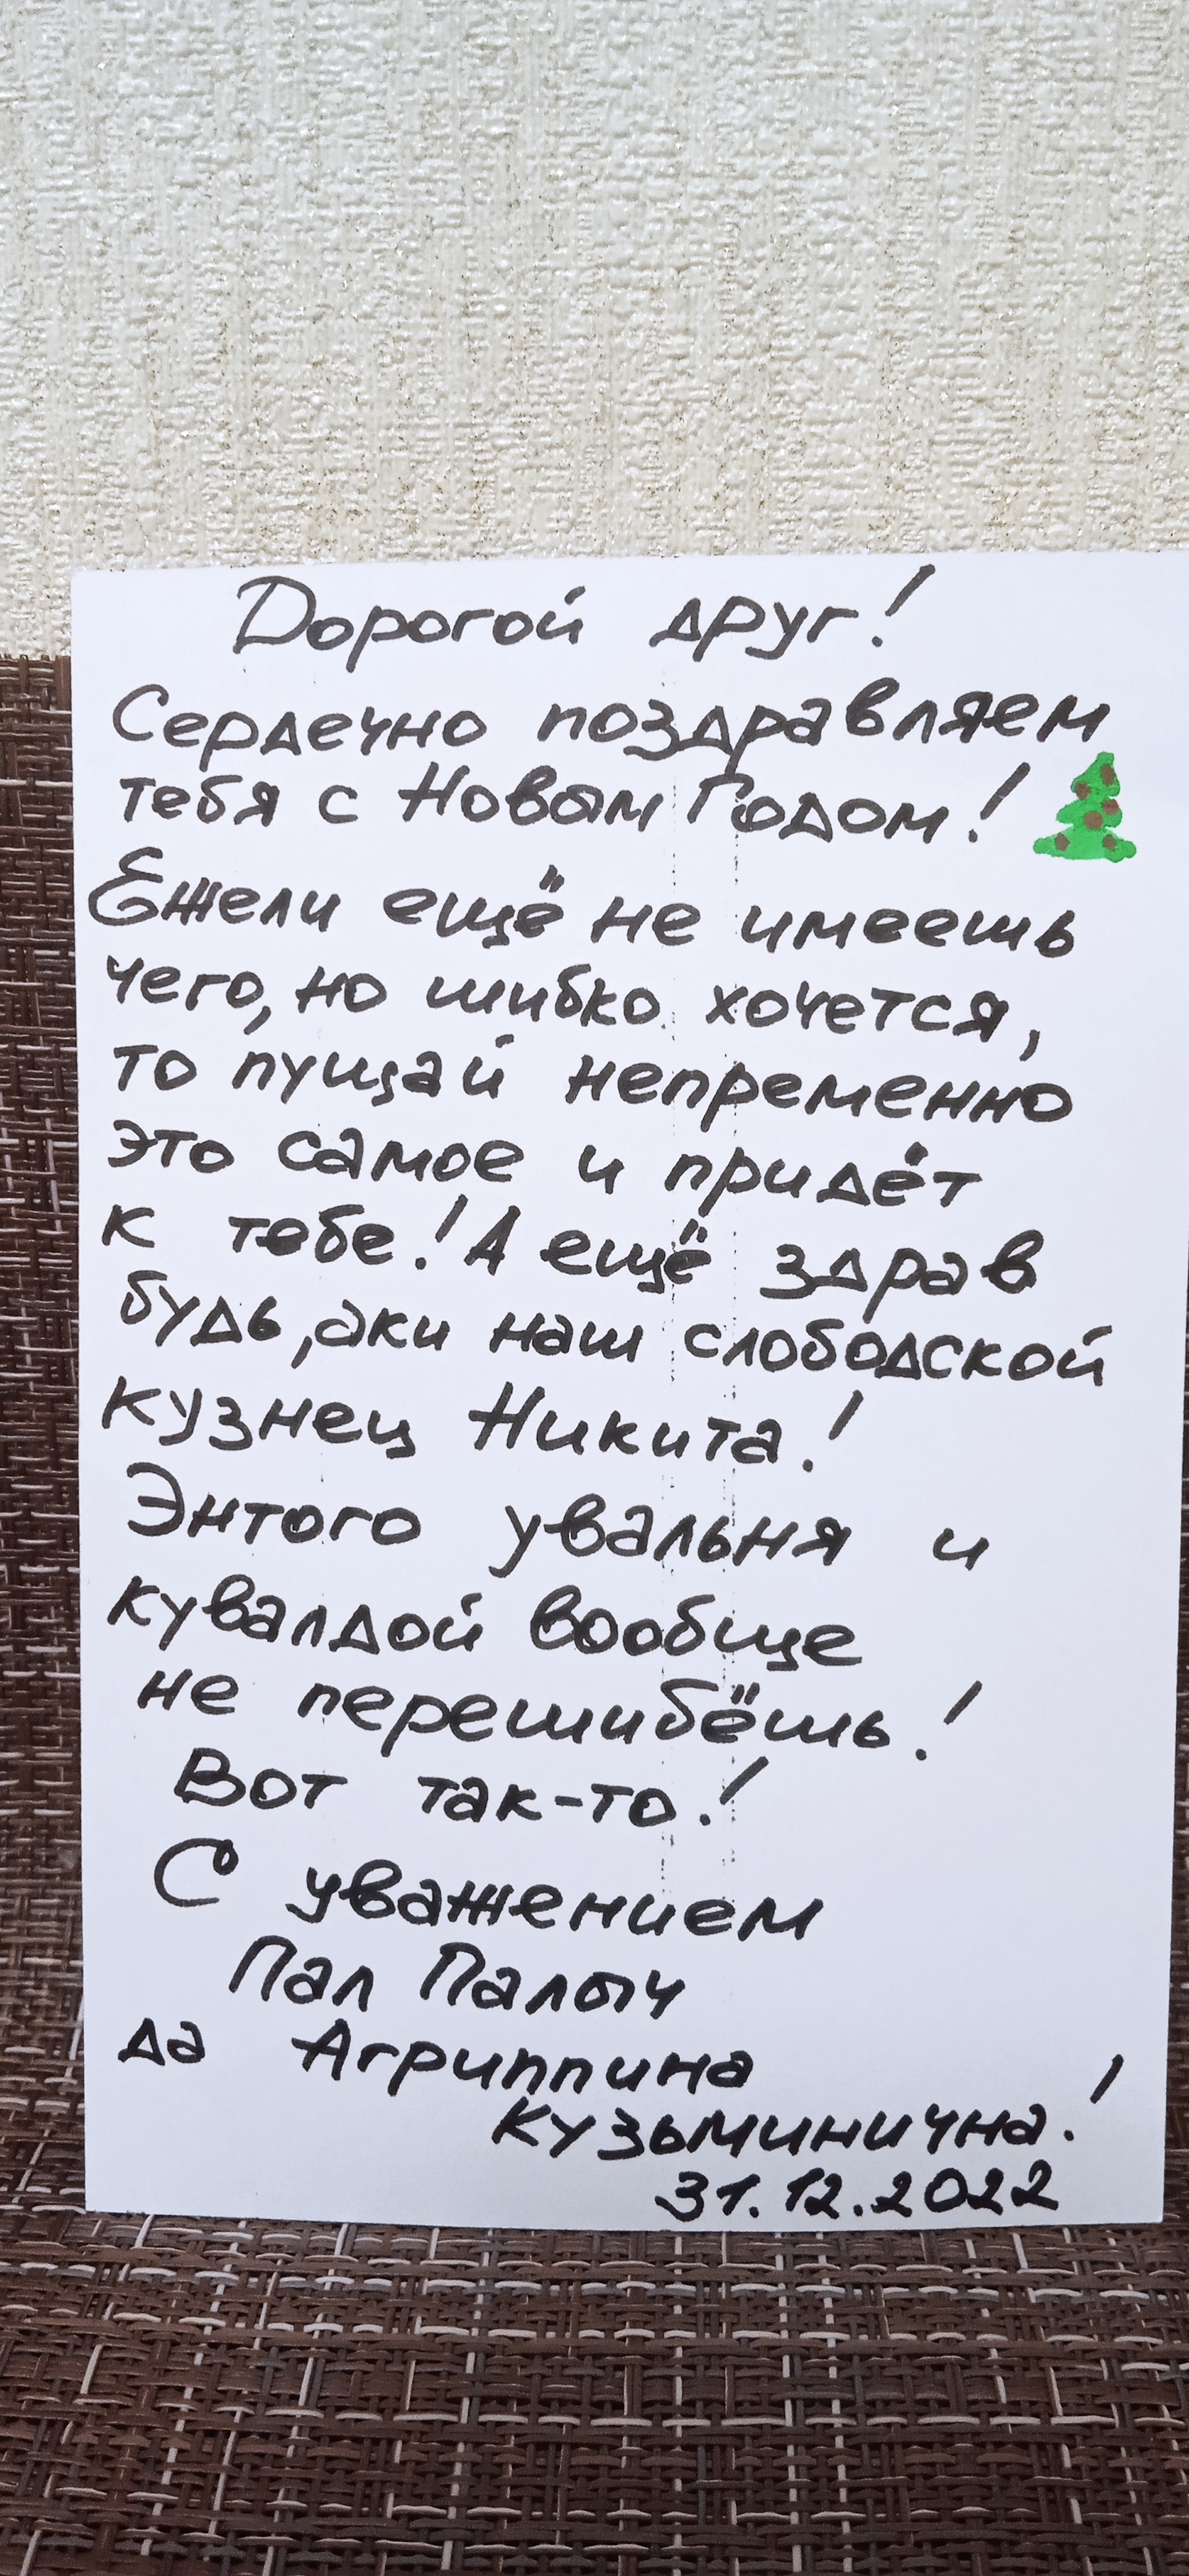 Дорогой друг!
Сердечно поздравляем
тебя с Новым Годом!
Ежели ещё не имеешь
чего, но шибко хочется,
то пущай непременно
это самое и придёт
к тебе! А ещё здрав
будь, аки наш слободской
кузнец Никита!
Энтого увальня и
кувалдой вообще
не перешибёшь!
Вот так-то!
С уважением
Пал Палыч
да Агриппина
Кузьминична!
31.12.2022